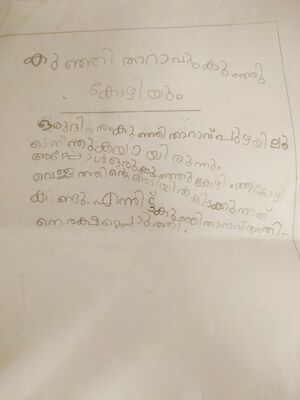 കുഞ്ഞി താറാവും കുഞ്ഞു
കോഴിയും
ഒരു ദിവസം കുഞ്ഞി താറാവ് പുഴയിലൂ
ടെ നീന്തുകയായിരുന്നു.
അപ്പോൾ ഒരു കുഞ്ഞു കോഴി. ആ കോഴി
വെള്ളത്തിന്റെ അടിയിൽ കിടക്കുന്നത്
കണ്ടു. എന്നിട്ട് കുഞ്ഞി താറാവ് അതി-
നെ രക്ഷപ്പെടുത്തി.